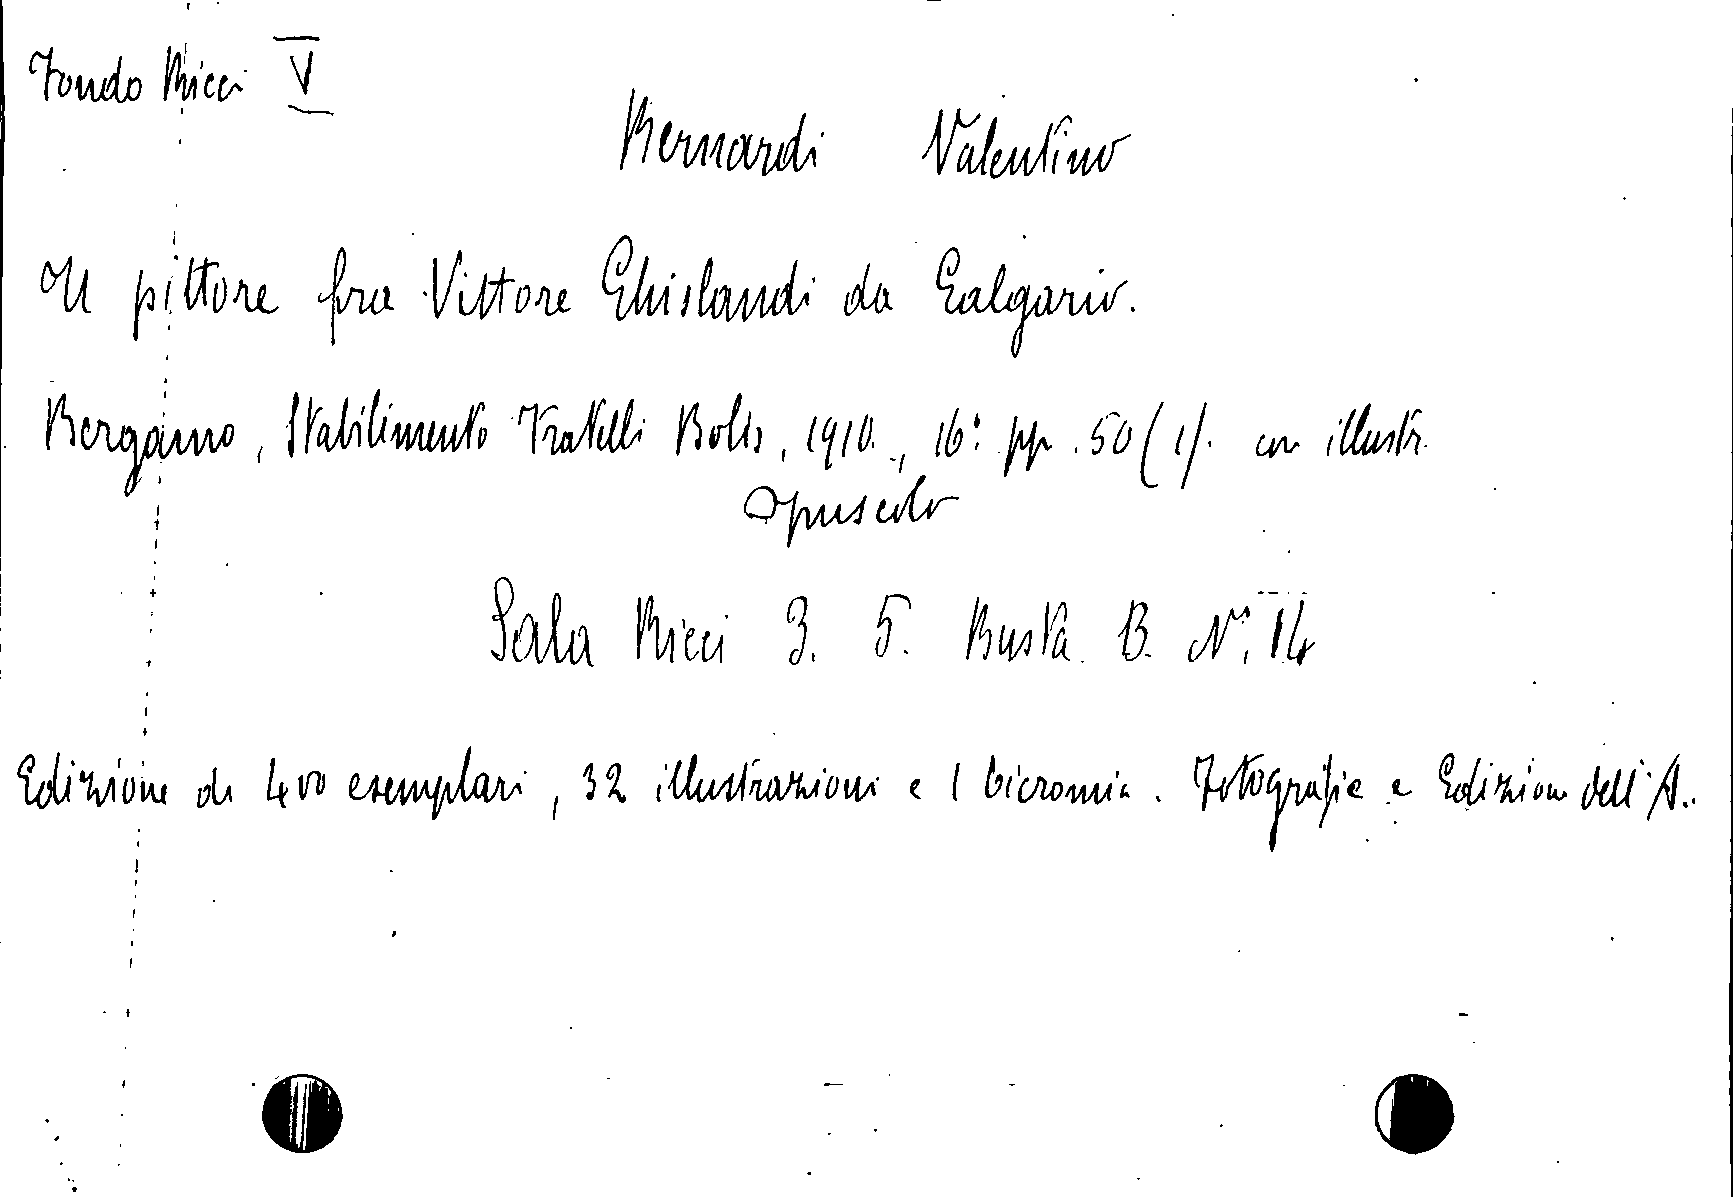 Fondo Ricci V
Bernardi Valentino
Il pittore fra Vittore Ghislandi da Galgario.
Bergamo, Stabilimento Fratelli Bolis, 1910., 16° pp. 50 (1). con illustr.
opuscolo
Sala Ricci 3. 5. Busta B. N°. 14
Edizione di 400 esemplari, 32 illustrazioni e 1 bicromia. Fotografie e Edizione dell'A..